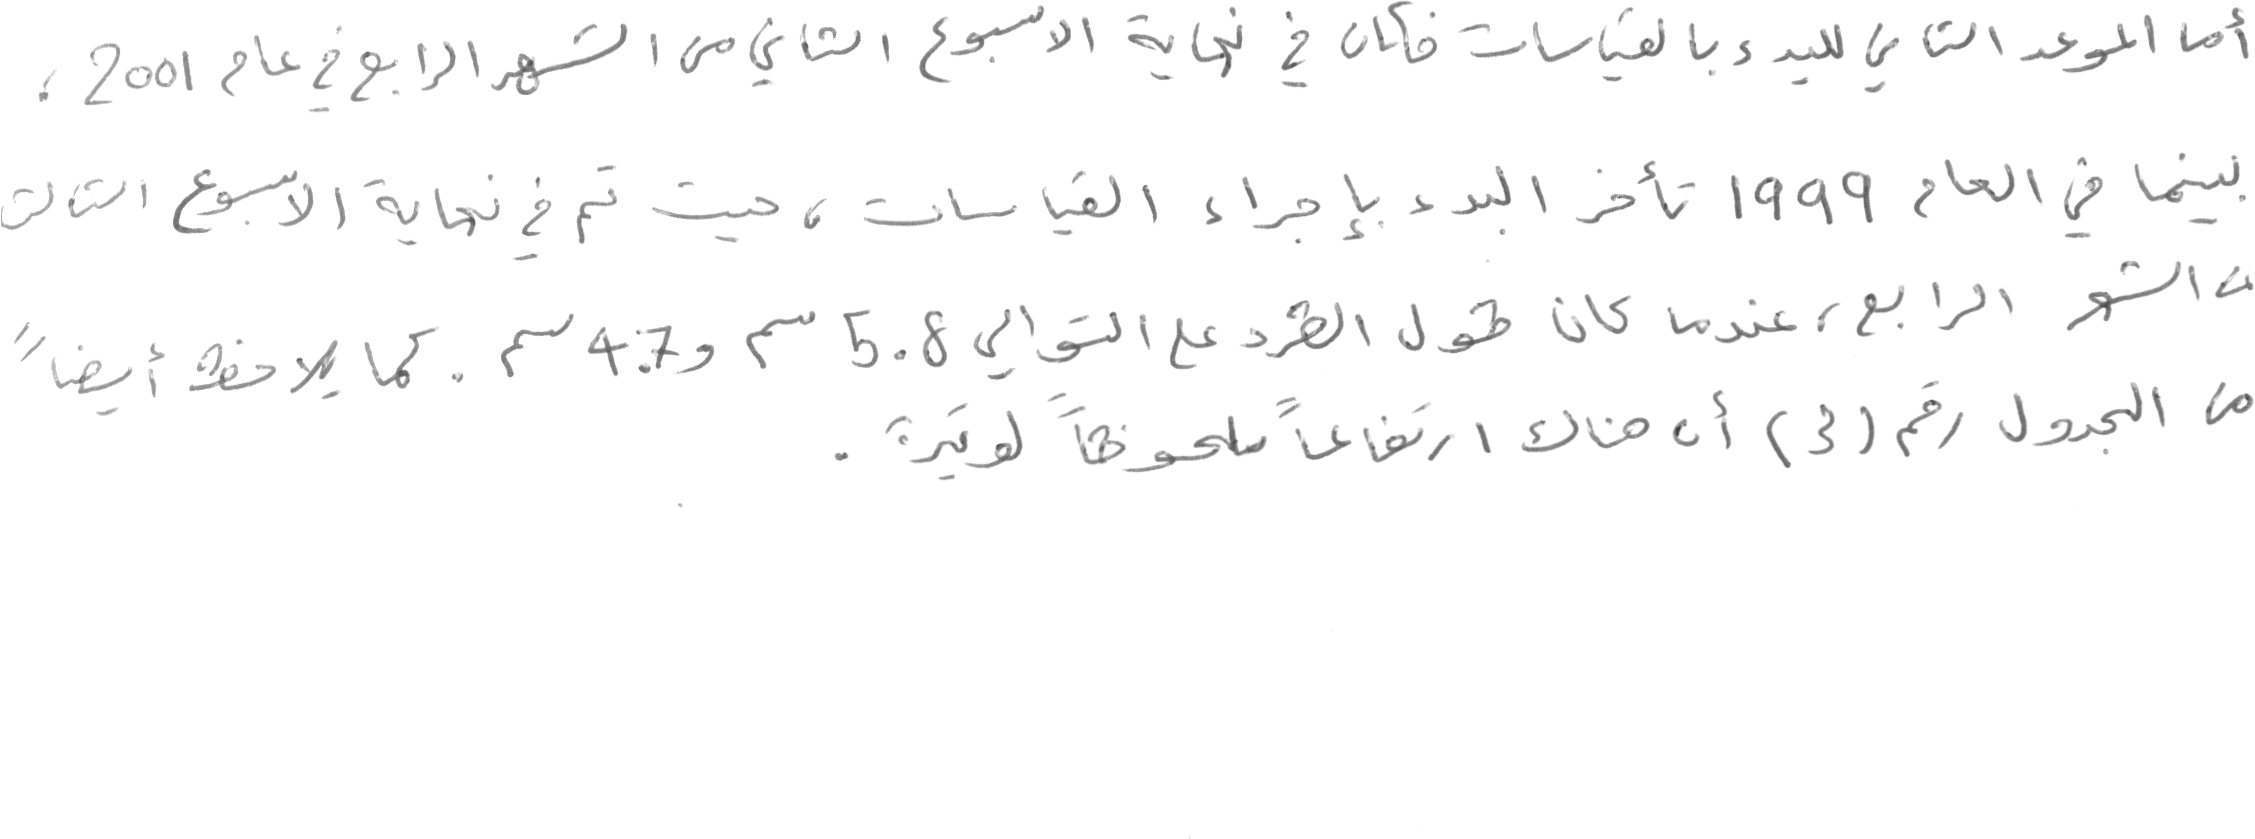 أما الموعد الثاني للبدء بالقياسات فكان في نهاية الاسبوع الثاني من الشهر الرابع في عام 2001،
بينما في العام 1999 تأخر البدء بإجراء القياسات، حيث تم في نهاية الاسبوع الثالث
من الشهر الرابع، عندما كان طول الطرد على التوالي 5.8 سم و 4.7 سم. كما يلاحظ أيضاً
من الجدول رقم (3) أن هناك ارتفاعاً ملحوظاً لوتيرة.